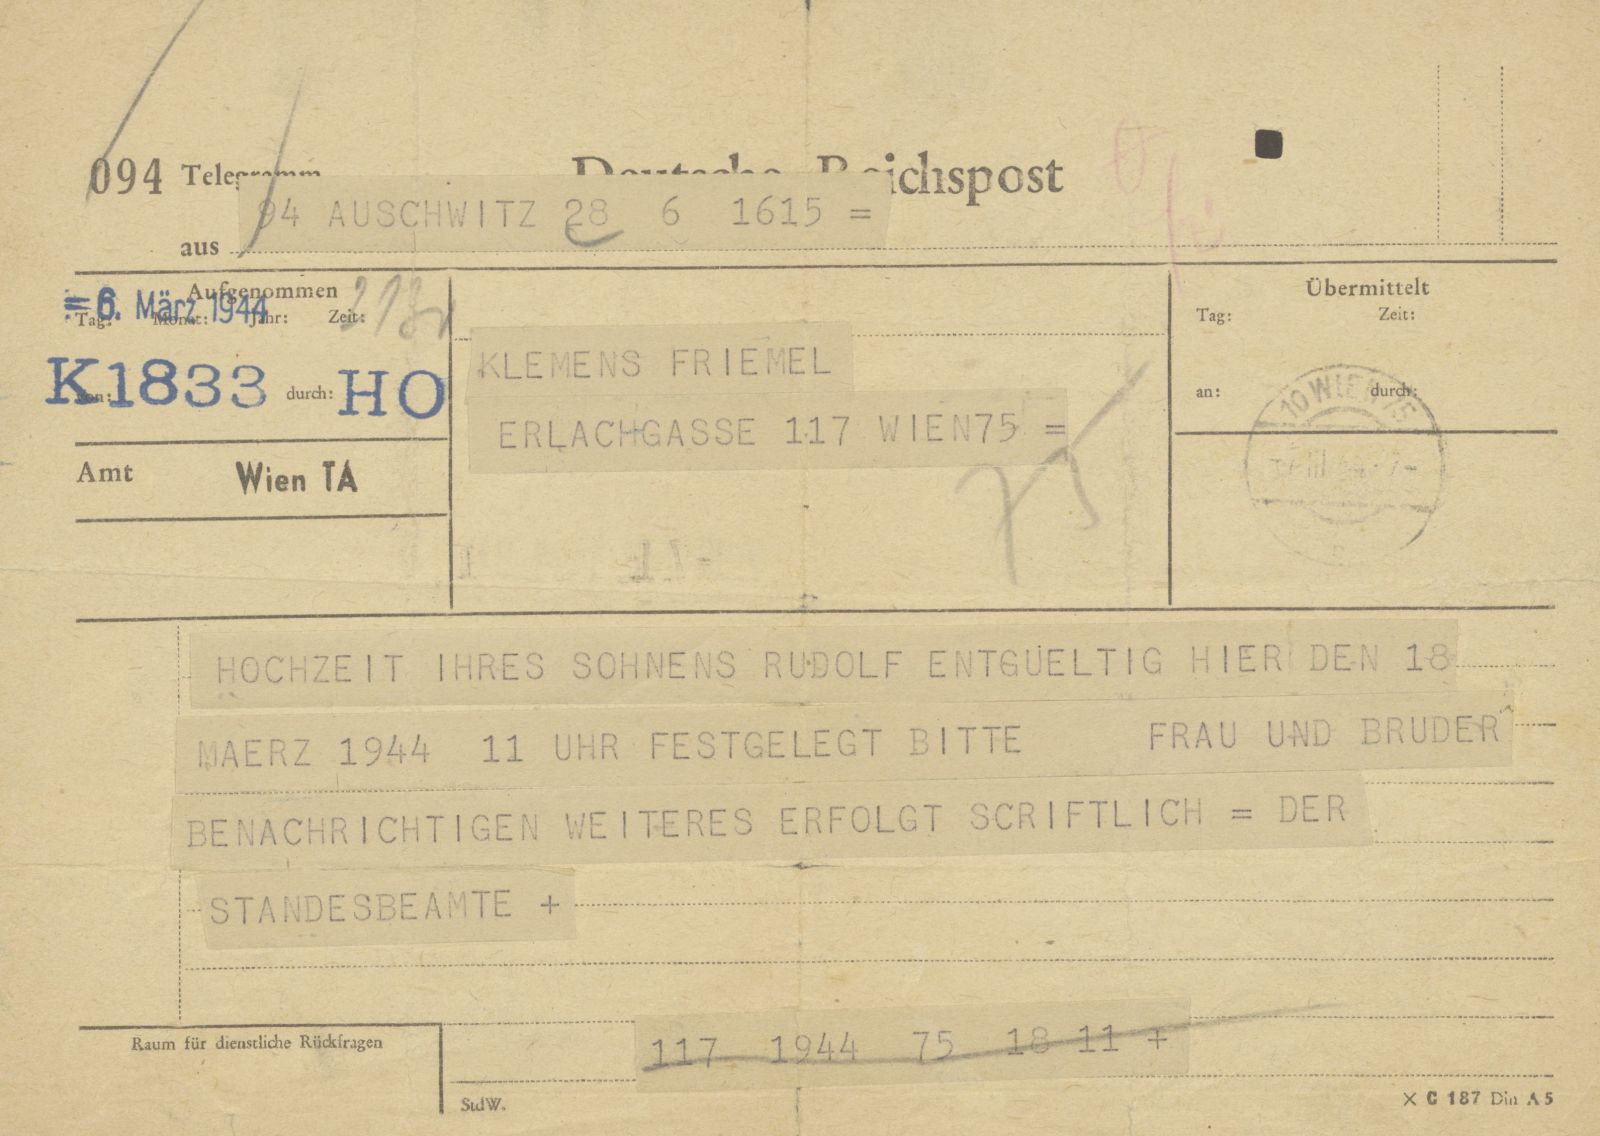 094 Telegramm Deutsche Reichspost
94 AUSCHWITZ 28 6 1615 =
aus
Aufgenommen
Tag: Monat: Jahr: Zeit:
=6. März 1944
von: durch:
K1833 HO
Amt Wien TA
KLEMENS FRIEMEL
ERLACHGASSE 117 WIEN75 =
75
Übermittelt
Tag: Zeit:
an: durch:
10 WIEN 75
HOCHZEIT IHRES SOHNENS RUDOLF ENTGUELTIG HIER DEN 18
MAERZ 1944 11 UHR FESTGELEGT BITTE FRAU UND BRUDER
BENACHRICHTIGEN WEITERES ERFOLGT SCRIFTLICH = DER
STANDESBEAMTE +
Raum für dienstliche Rückfragen
117 1944 75 18 11 +
StdW.
× C 187 Din A 5